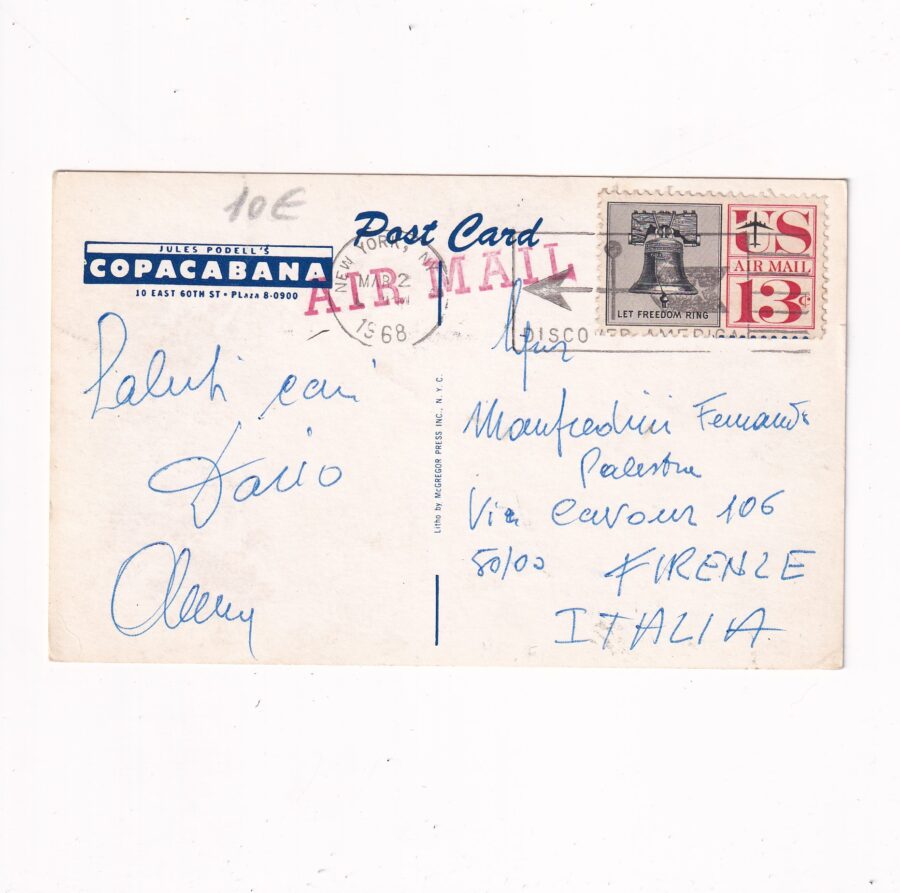 10€
Post Card
JULES PODELL'S
COPACABANA
10 EAST 60TH ST • PLaza 8-0900
AIR MAIL
NEW YORK, N.Y.
MAR 2
1968
DISCOVER AMERICA
LET FREEDOM RING
US
AIR MAIL
13c
Saluti cari
Dario
Litho by McGREGOR PRESS INC., N. Y. C.
Manfredini Fernando
Palestra
Via Cavour 106
50100 FIRENZE
ITALIA